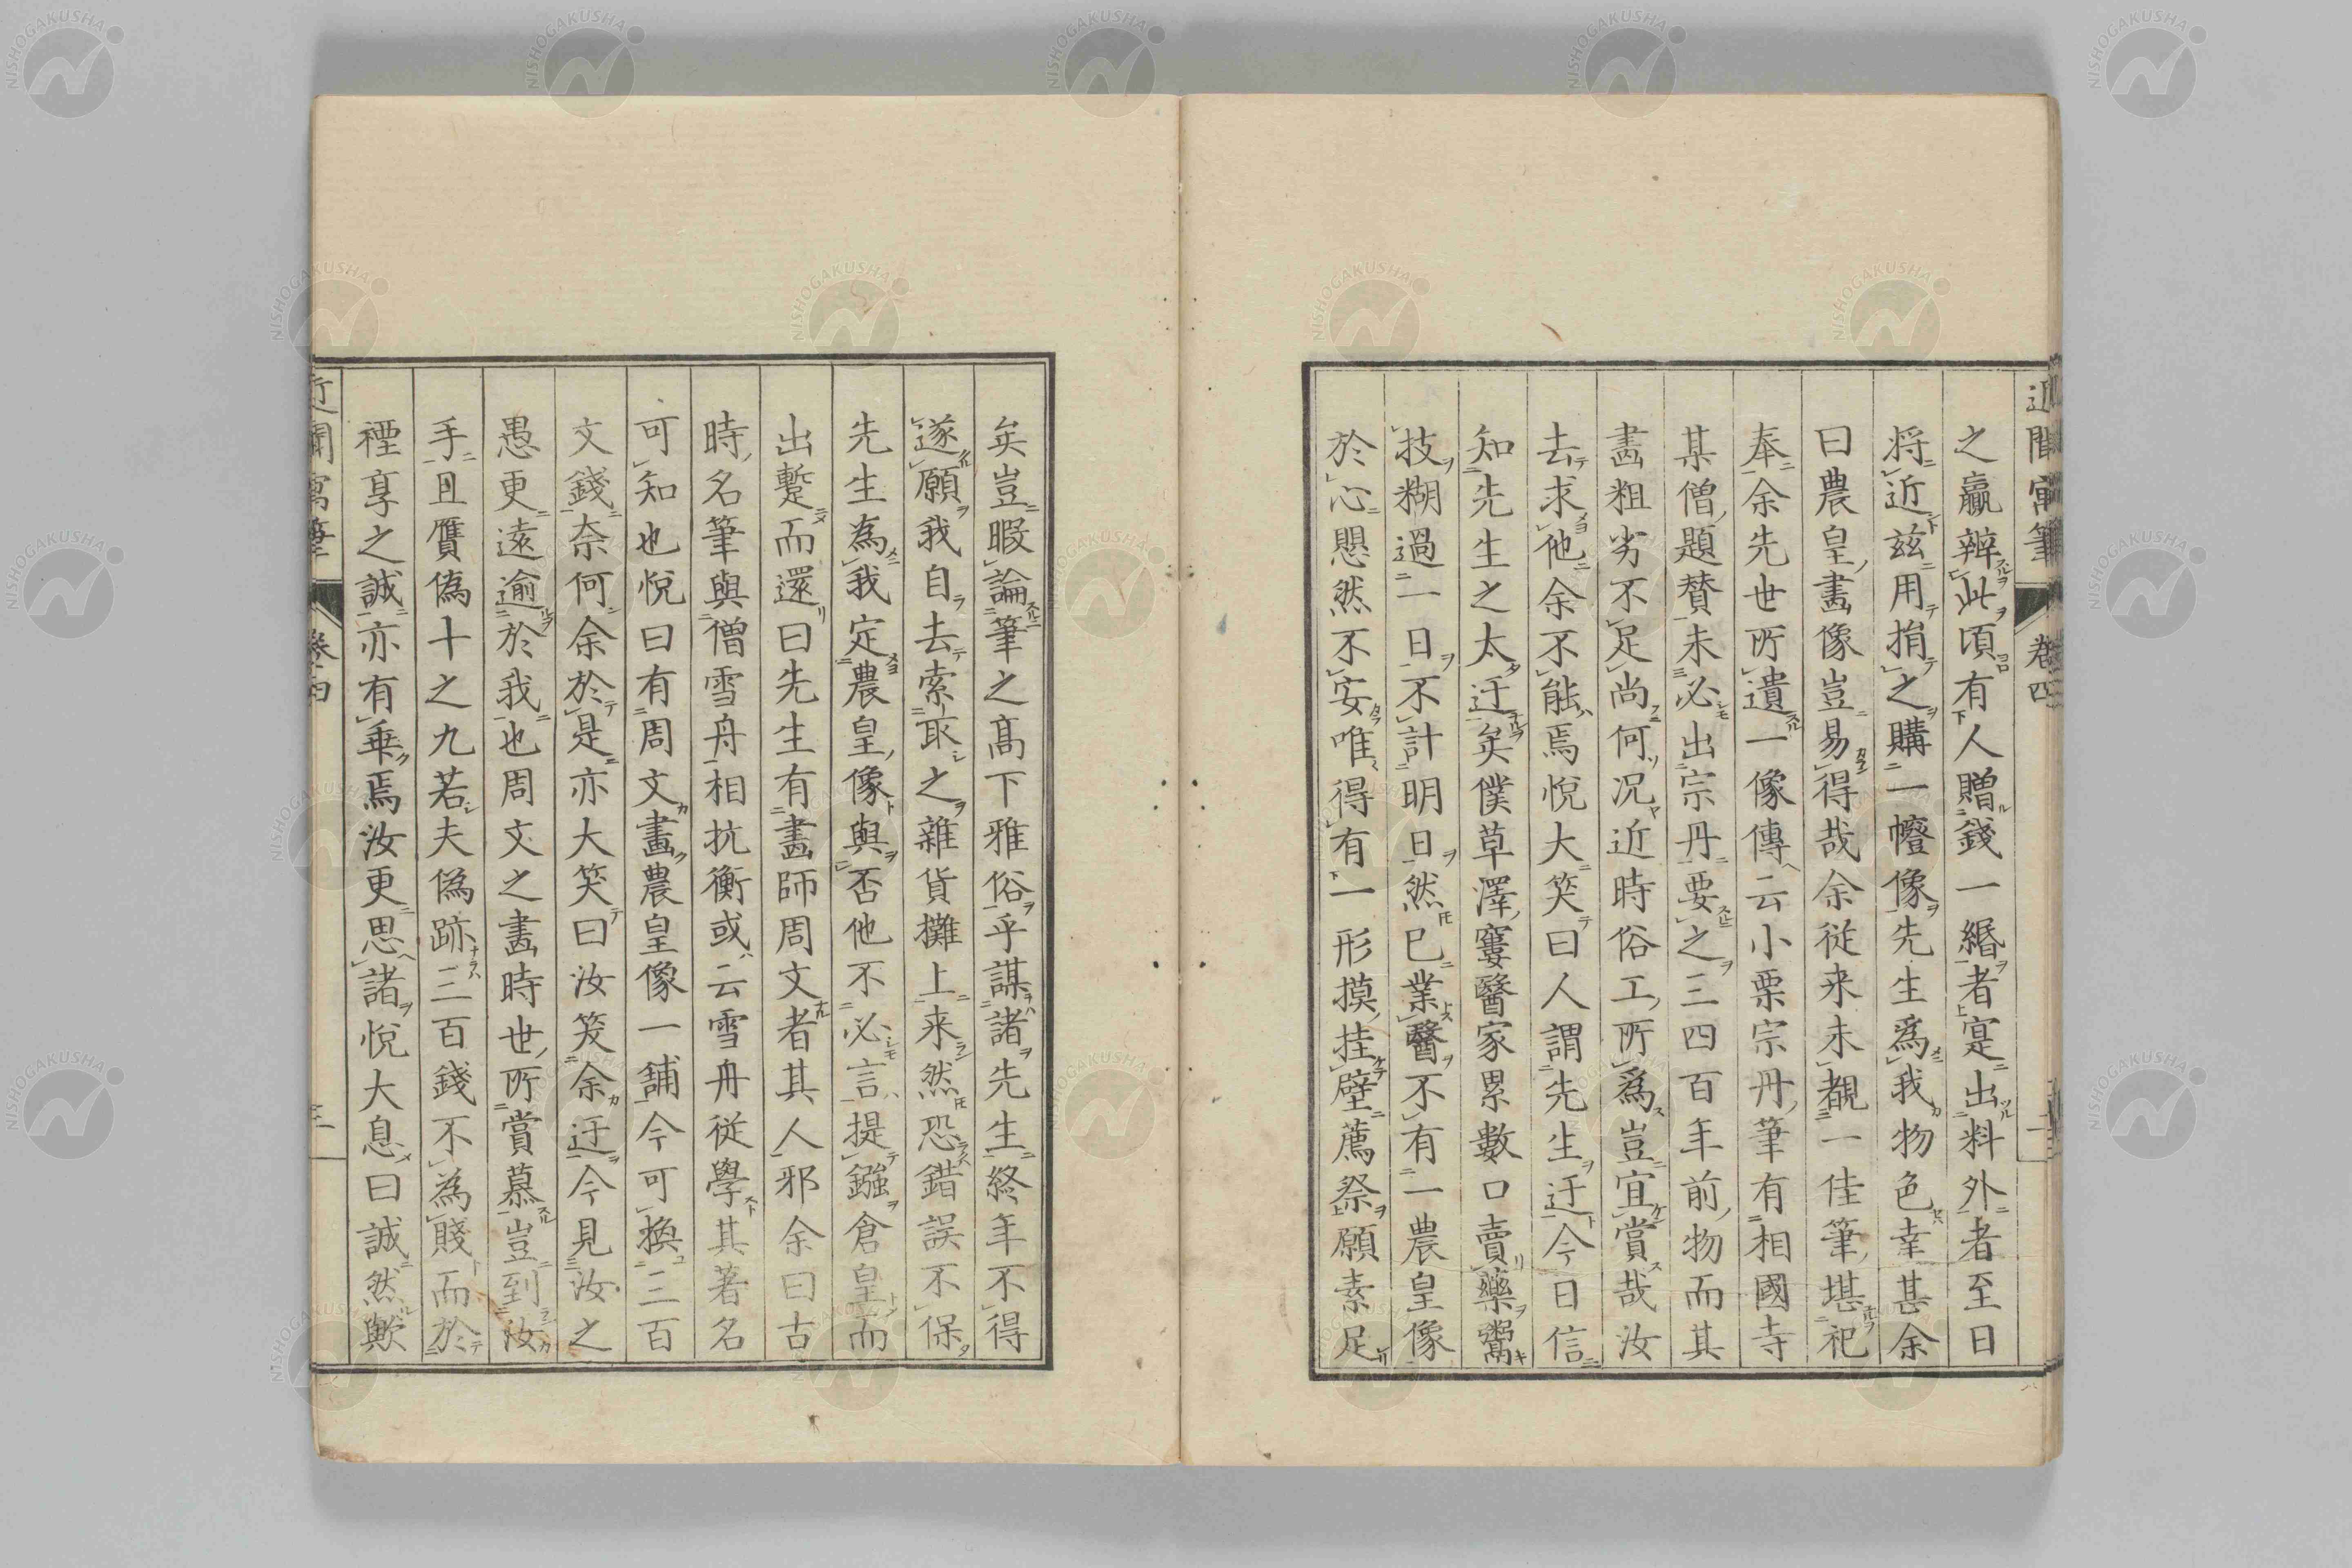 近聞寓筆 卷四 二
之贏辨此頃有人贈錢一緡者寔出料外者至日
将近兹用捐之購一幢像先生爲我物色幸甚余
曰農皇畫像豈易得哉余従来未覩一佳筆堪祀
奉余先世所遺一像傳云小栗宗丹筆有相國寺
某僧題賛未必出宗丹要之三四百年前物而其
畵粗劣不足尚何况近時俗工所爲豈宜賞哉汝
去求他余不能焉悦大笑曰人謂先生迂今日信
知先生之太迂矣僕草澤窶醫家累數口賣藥鬻
技糊過一日不計明日然已業醫不有一農皇像
於心恧然不安唯得有一形摸挂壁薦祭願素足
矣豈暇論筆之髙下雅俗乎謀諸先生終年不得
遂願我自去索取之雜貨攤上来然恐錯誤不保
先生為我定農皇像與否他不必言提鏹倉皇而
出蹔而還曰先生有畵師周文者其人邪余曰古
時名筆與僧雪舟相抗衡或云雪舟従學其著名
可知也悦曰有周文畵農皇像一舖今可換三百
文錢奈何余於是亦大笑曰汝笑余迂今見汝之
愚更遠逾於我也周文之畵時世所賞慕豈到汝
手且贋偽十之九若夫偽跡三百錢不為賤而於
禋享之誠亦有乗焉汝更思諸悦大息曰誠然歟
近聞寓筆 卷四 三